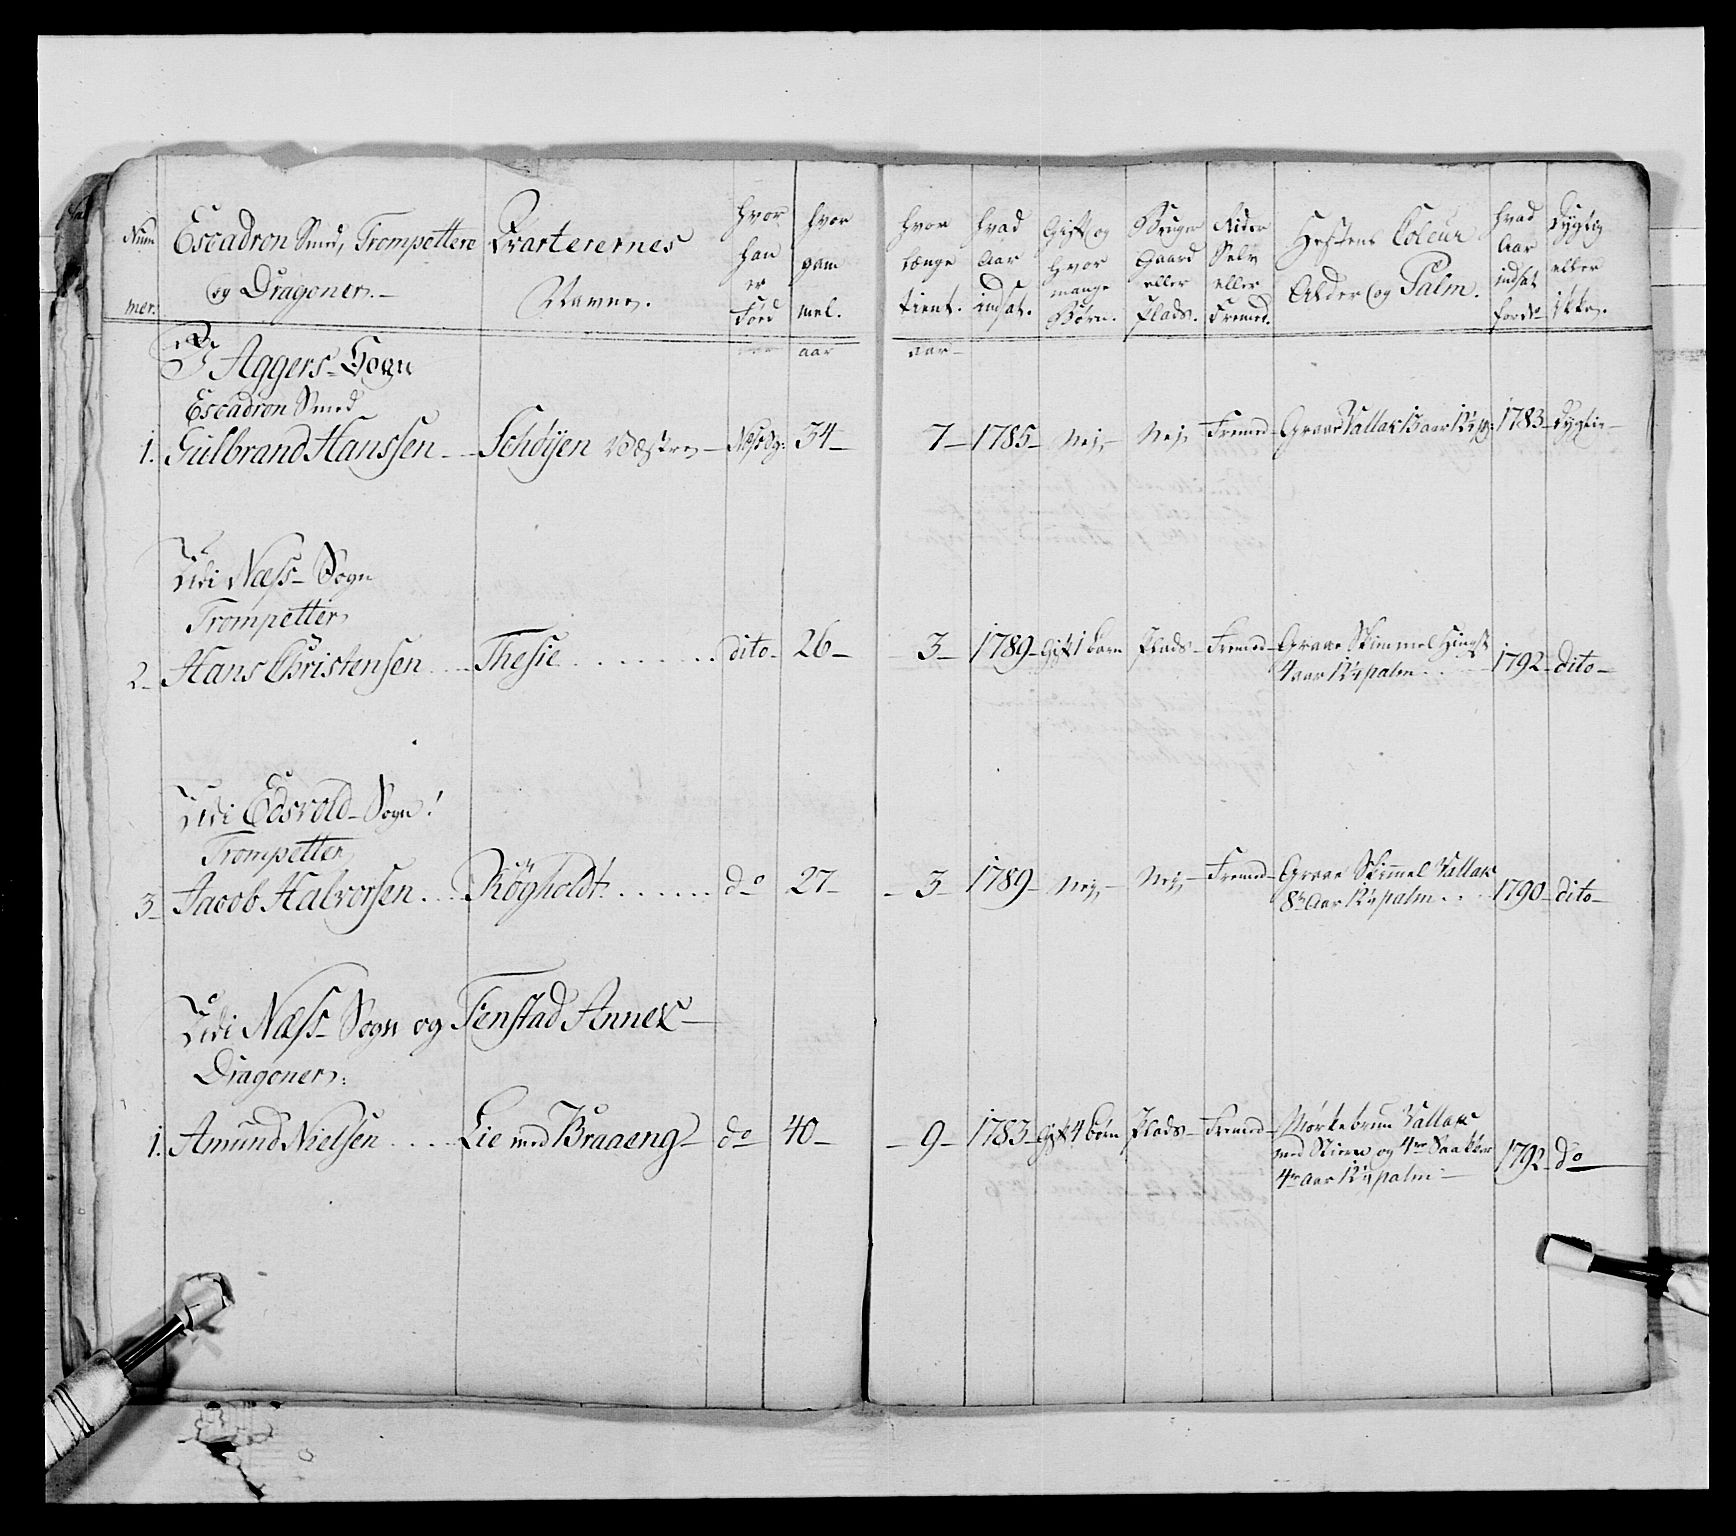 Num
mer.
Escadron Smed, Trompettere
og Dragoner.
Qvarterernes
Navne.
hvor
han
er
Föed
hvor
gam
mel.
hvor
længe
tient.
hvad
Aar
indsat.
Gift og
hvor
mange
Börn.
Bruger
Gaard
eller
Plads.
Rider
Selv
eller
Fremed.
Hestens Coleur
Alder og Palm.
hvad
Aar
indsat
Dygtig
eller
ikke.
aar
aar
I Aggers Sogn
Escadron Smed
1. Gulbrand Hanssen Schöÿen Vestre 34 7 1785 Nej, Nej, Fremed Graae Vallak 1783 Dygtig
Udi Næss Sogn
Trompetter
2 Hans Christensen Thesie dito 26 3 1789 Gift 1 barn Plads Fremed Graae Skimmel Hingst
4 aar 12½ palm 1792 dito
Udi Edsvold Sogn!
Trompetter
3 Jacob Halvorsen Rögholdt do 27 3 1789 Nej, Nej, Fremed Graae Skimmel Vallak
Aar 12½ palm 1790 dito
Udi Næss Sogn og Fenstad Annex
Dragoner:
1. Amund Nielsen Lie med Braaeng do 40 9 1783 Gift 4 börn Plads Fremed Mørkebrun Vallak
med Stierne og
4 aar 12½ palm 1792 do